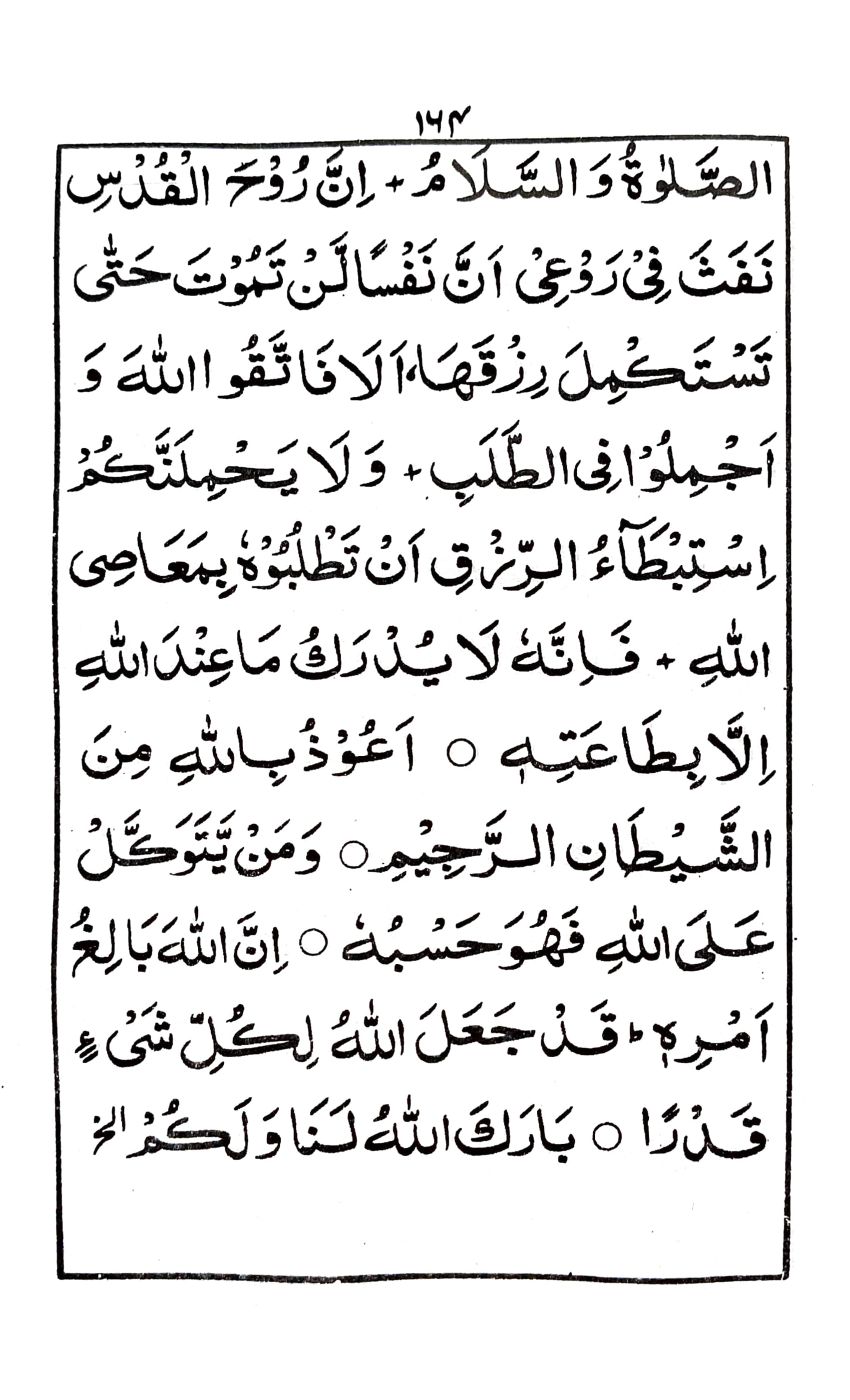 ۱۶۴
الصَّلٰوةُ وَ السَّلَامُ + اِنَّ رُوْحَ الْقُدْسِ
نَفَثَ فِىْ رَوْعِىْ اَنَّ نَفْسًا لَّنْ تَمُوْتَ حَتّٰى
تَسْتَكْمِلَ رِزْقَهَا، اَلَا فَاتَّقُوا اللّٰهَ وَ
اَجْمِلُوْا فِى الطَّلَبِ + وَ لَا يَحْمِلَنَّكُمْ
اِسْتِبْطَآءُ الرِّزْقِ اَنْ تَطْلُبُوْهُ بِمَعَاصِى
اللّٰهِ + فَاِنَّهٗ لَا يُدْرَكُ مَا عِنْدَ اللّٰهِ
اِلَّا بِطَاعَتِهٖ ○ اَعُوْذُ بِاللّٰهِ مِنَ
الشَّيْطَانِ الرَّجِيْمِ ○ وَ مَنْ يَّتَوَكَّلْ
عَلَى اللّٰهِ فَهُوَ حَسْبُهٗ ○ اِنَّ اللّٰهَ بَالِغُ
اَمْرِهٖ ؕ قَدْ جَعَلَ اللّٰهُ لِكُلِّ شَىْءٍ
قَدْرًا ○ بَارَكَ اللّٰهُ لَنَا وَلَكُمْ الخ